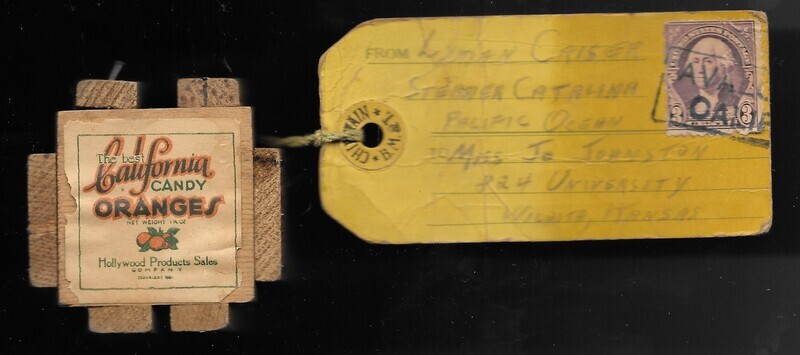 The best
California
CANDY
ORANGES
NET WEIGHT 1¼ OZ
Hollywood Products Sales
COMPANY
FROM LYMAN CRISER
STEAMER CATALINA
PACIFIC OCEAN
TO MISS JO JOHNSTON
824 UNIVERSITY
WICHITA, KANSAS
3 3